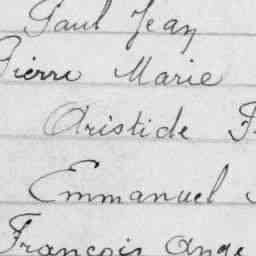 Paul Jean
Pierre Marie
Aristide
Emmanuel
François Ange